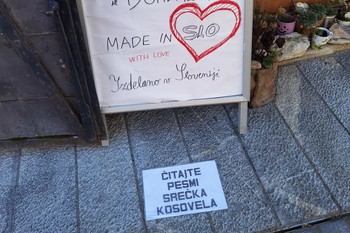 MADE IN SLO
WITH LOVE
Izdelano v Sloveniji
ČITAJTE
PESMI
SREČKA
KOSOVELA